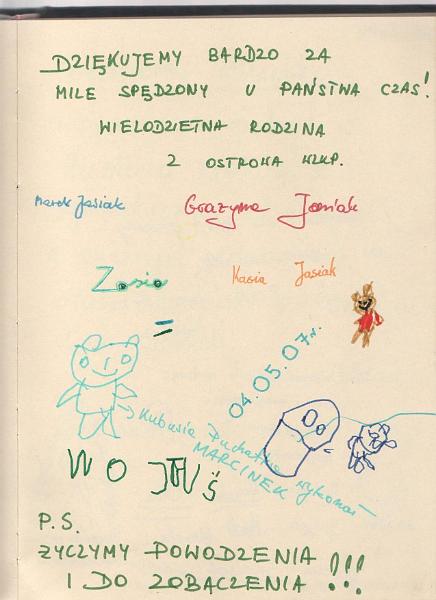 DZIĘKUJEMY BARDZO ZA
MILE SPĘDZONY U PAŃSTWA CZAS!
WIELODZIETNA RODZINA
Z OSTROWA WLKP.
Marek Jasiak
Grażyna Jasiak
Zosia
Kasia Jasiak
=
04.05.07r.
Kubusia Puchatka wykonał
MARCINEK
WOJTUŚ
P.S.
ŻYCZYMY POWODZENIA
I DO ZOBACZENIA !!!